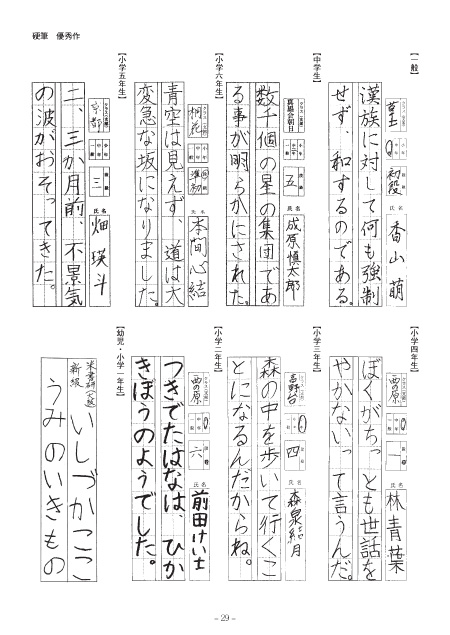 硬筆　優秀作
【一般】
初段
香山萌
漢族に対して何も強制
せず、和するのである。
【中学生】
真風会朝日
五
成原慎太郎
数千個の星の集団であ
る事が明らかにされた。
【小学六年生】
桐花
準初
本間心結
青空は見えず、道は大
変急な坂になりました。
【小学五年生】
京都
三
畑瑛斗
二、三か月前、不景気
の波がおそってきた。
【小学四年生】
西の原
林青葉
ぼくがちっとも世話を
やかないって言うんだ。
【小学三年生】
吉野台
四
森泉結月
森の中を歩いて行くこ
とになるんだからね。
【小学二年生】
西の原
六
前田けい士
つきでたはなは、ひか
きぼうのようでした。
【幼児・小学一年生】
新級
いしづかここ
うみのいきもの
- 29 -